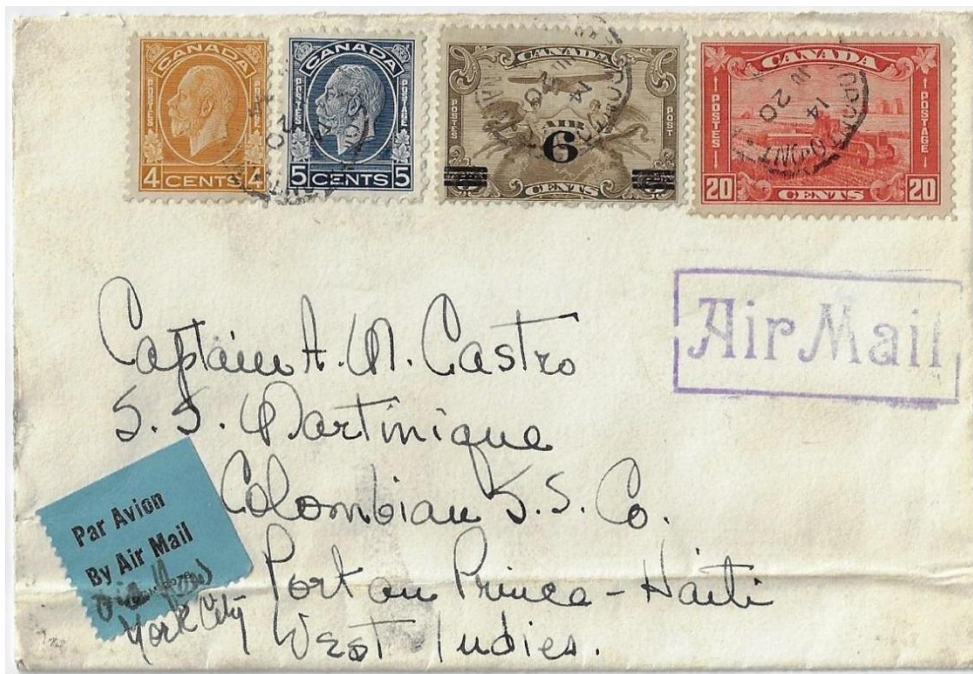 CANADA
POSTES POSTAGE
4 CENTS 4
CANADA
POSTES POSTAGE
5 CENTS 5
CANADA
POSTES POST
AIR
6
CENTS
CANADA
POSTES POSTAGE
20 CENTS 20
14
20
Air Mail
Captain A. M. Castro
S. S. Martinique
Colombian S. S. Co.
Port au Prince - Haiti
West Indies.
Par Avion
By Air Mail
via New
York City